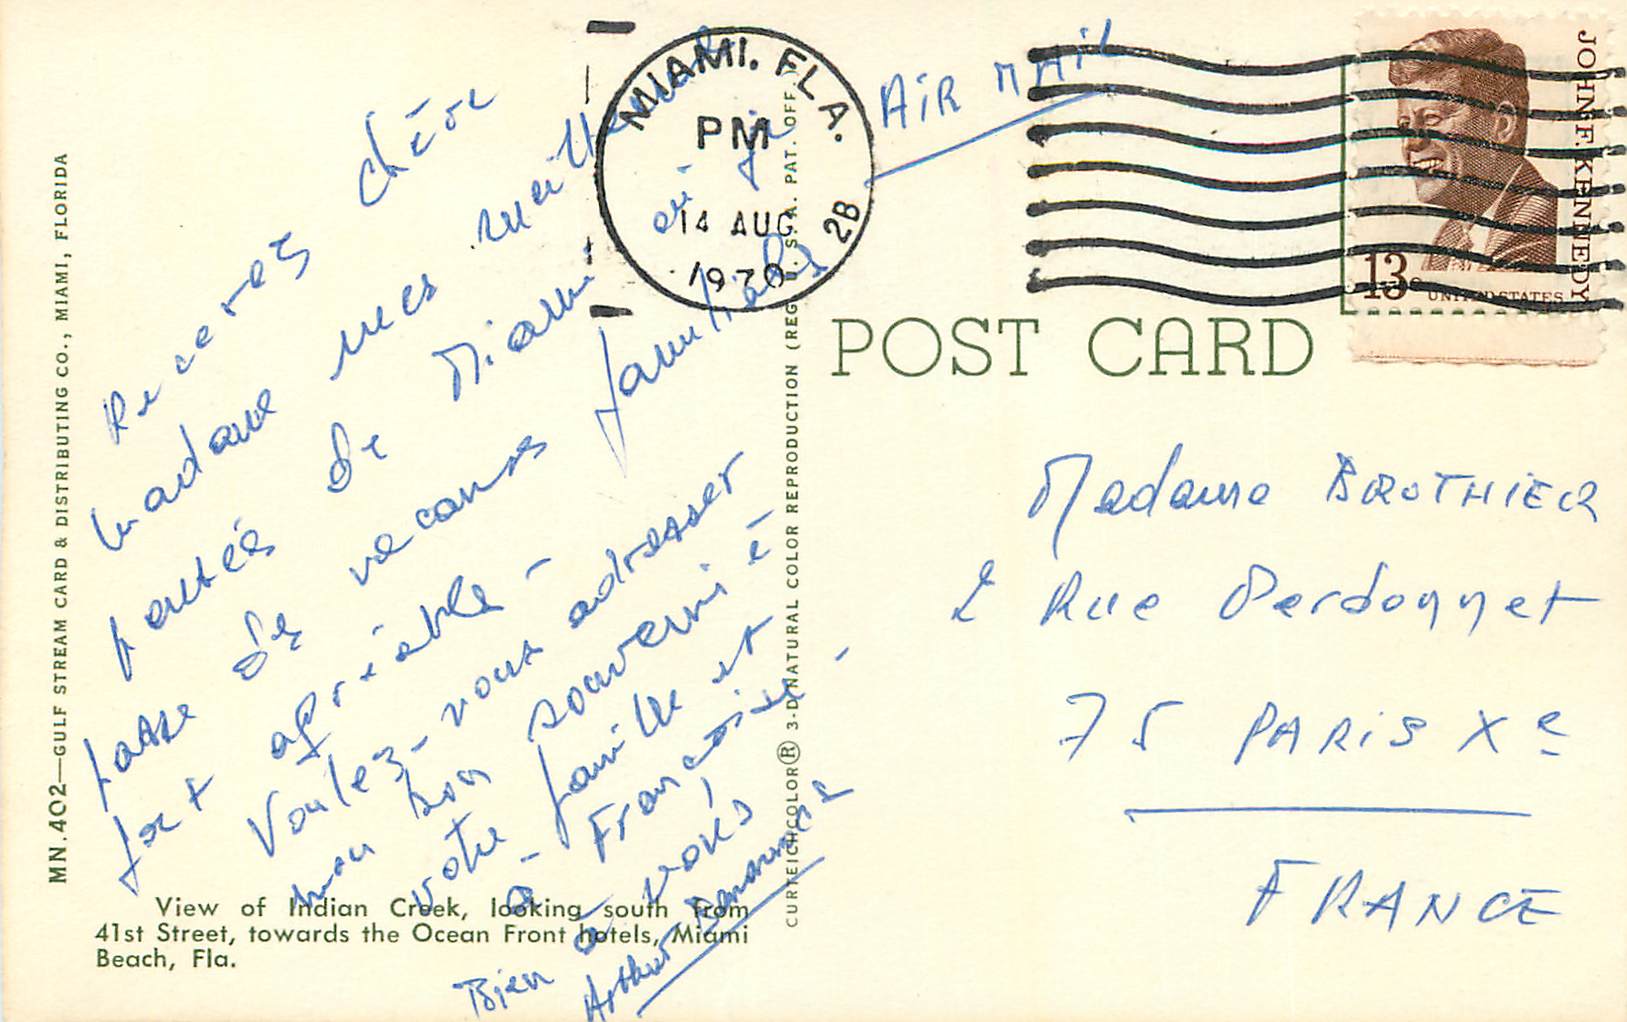 Recevez chère
Madame mes meilleures
pensées de Miami où je
passe des vacances familiales
fort agréables -
Voulez-vous adresser
mon bon souvenir à
votre famille et
à Françoise -
Bien à vous,
Arthur
AIR MAIL
MIAMI. FLA.
PM
14 AUG
1970
2B
JOHN F. KENNEDY
13c UNITED STATES
POST CARD
Madame BROTHIER
2 Rue Perdonnet
75 PARIS Xe
FRANCE
MN.402—GULF STREAM CARD & DISTRIBUTING CO., MIAMI, FLORIDA
CURTEICHCOLOR® 3-D NATURAL COLOR REPRODUCTION (REG. U. S. A. PAT. OFF.
View of Indian Creek, looking south from
41st Street, towards the Ocean Front hotels, Miami
Beach, Fla.